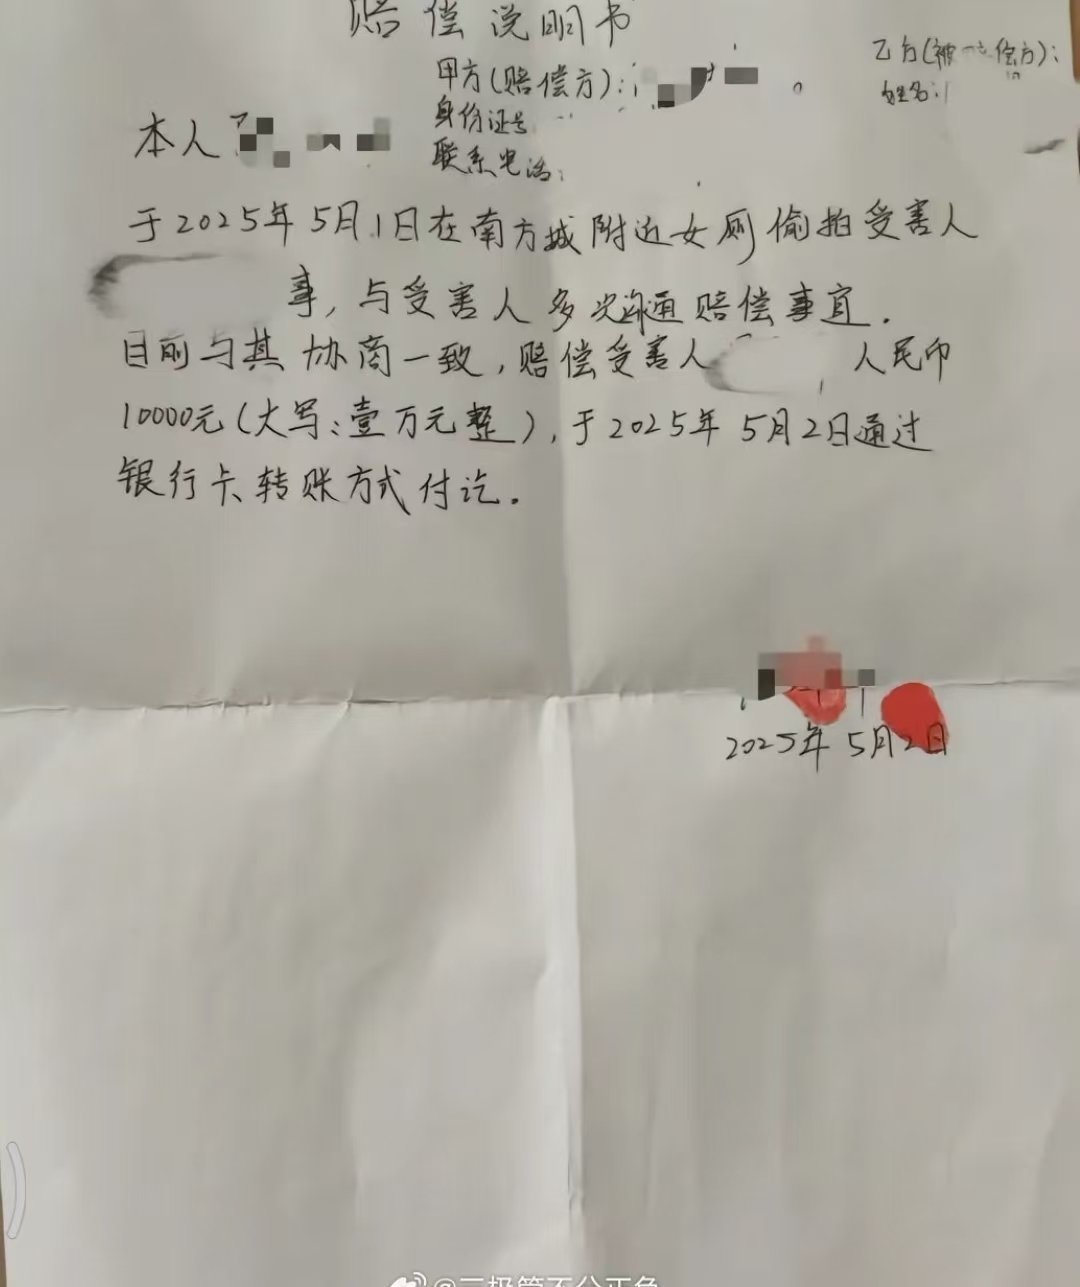 赔偿说明书
甲方(赔偿方):
乙方(被 偿方):
身份证号
姓名:
本人
联系电话:
于2025年5月1日在南方城附近女厕偷拍受害人
事,与受害人多次沟通赔偿事宜.
目前与其协商一致,赔偿受害人 人民币
10000元(大写:壹万元整),于2025年5月2日通过
银行卡转账方式付讫.
2025年5月2日